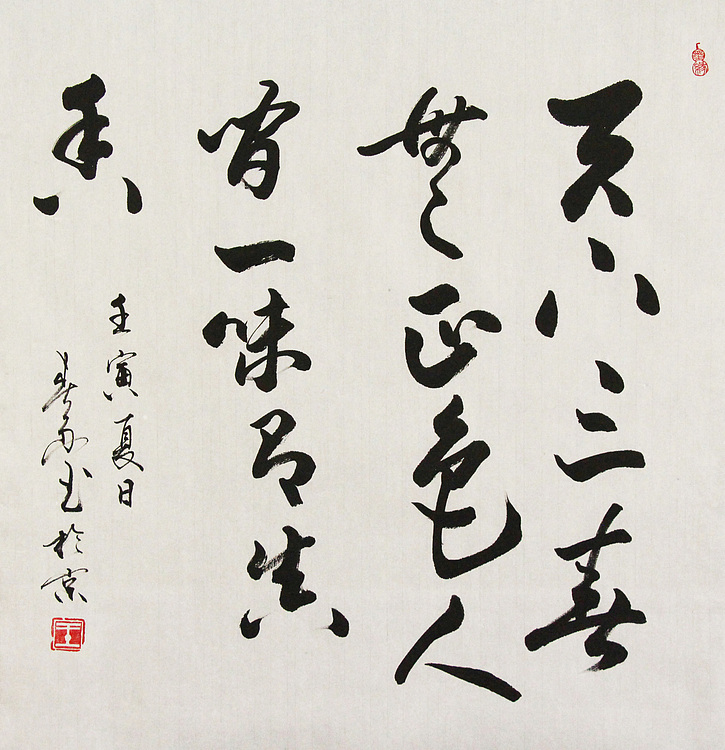 天下三春
無正色人
間一味有真
香
壬寅夏日
書於京